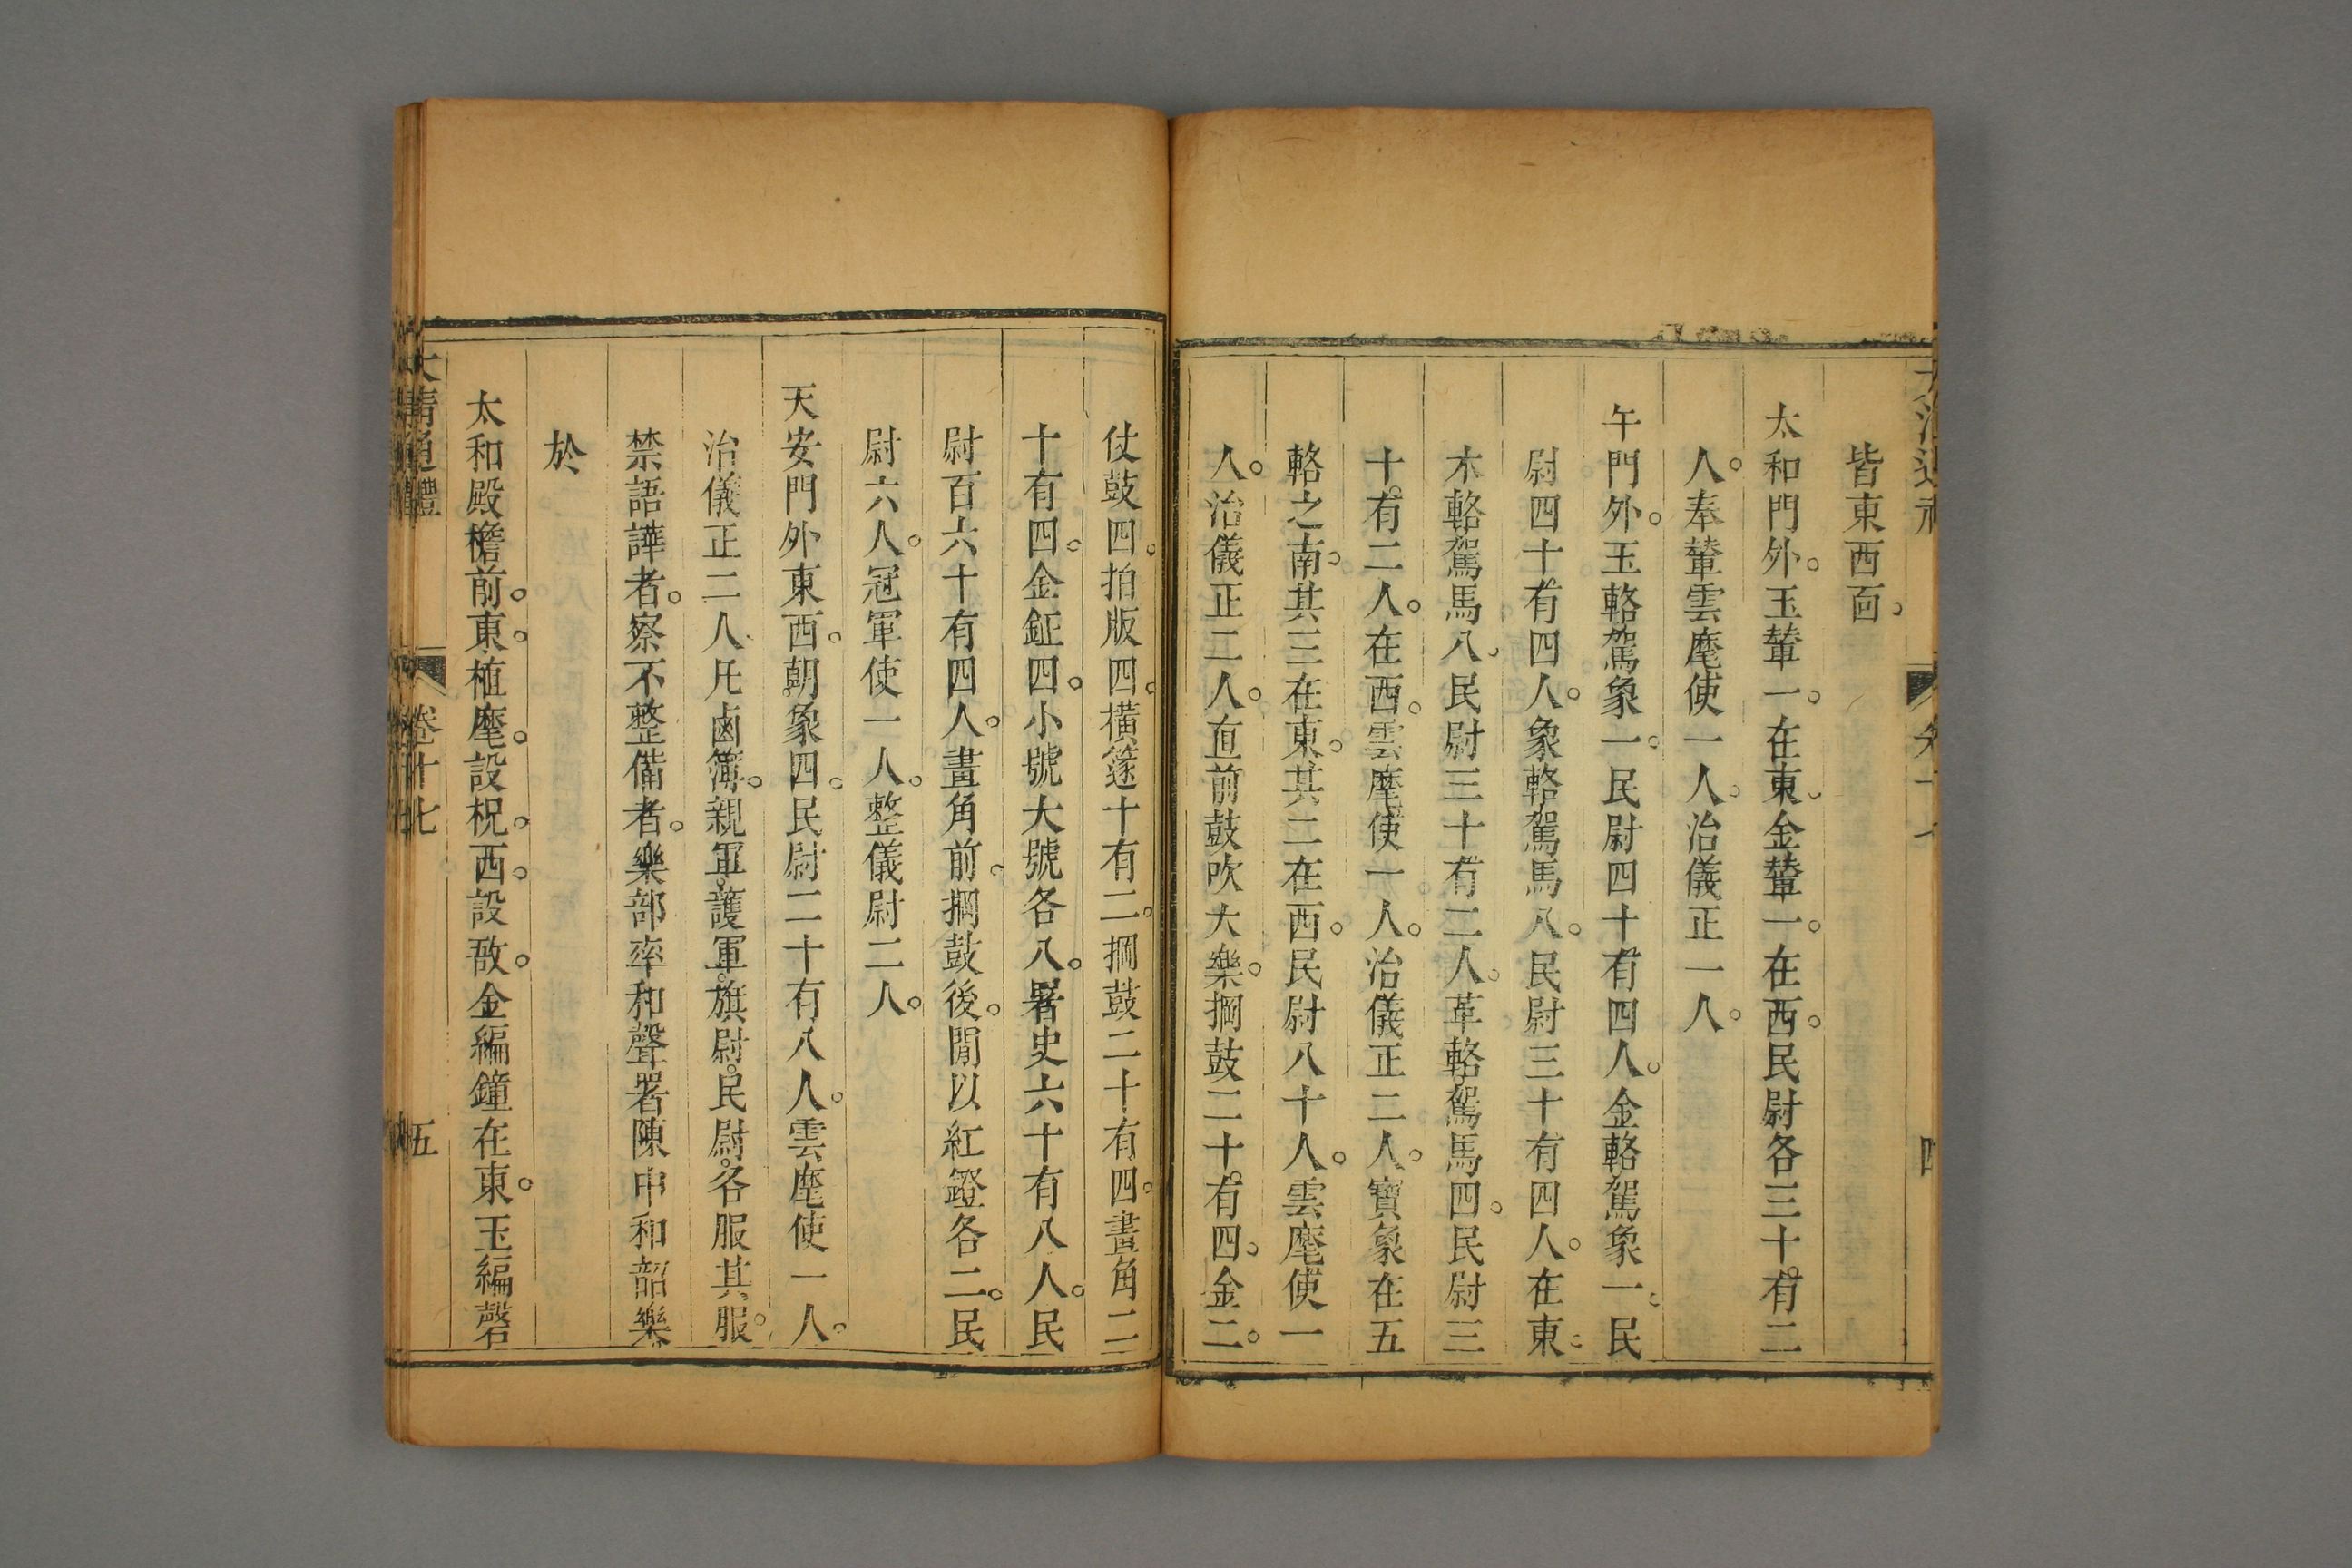 皆東西面。
太和門外。玉輦一。在東。金輦一。在西。民尉各三十。有二
人。奉輦雲麾使一人。治儀正一人。
午門外。玉輅駕象一。民尉四十。有四人。金輅駕象一。民
尉四十。有四人。象輅駕馬八。民尉三十有四人。在東。
木輅駕馬八。民尉三十有二人。革輅駕馬四。民尉三
十。有二人。在西。雲麾使一人。治儀正二人。寶象在五
輅之南。其三在東。其二在西。民尉八十人。雲麾使一
人。治儀正二人。直前鼓吹大樂。掆鼓二十。有四。金二。
仗鼓四。拍版四。橫篴十有二。掆鼓二十有四。畫角二
十有四。金鉦四。小號大號各八。署史六十有八人。民
尉百六十有四人。畫角前。掆鼓後。閒以紅鐙各二。民
尉六人。冠軍使一人。整儀尉二人。
天安門外東西。朝象四。民尉二十有八人。雲麾使一人。
治儀正二人凡鹵簿。親軍。護軍。旗尉。民尉。各服其服。
禁語譁者。察不整備者。樂部率和聲署陳中和韶樂
於
太和殿檐前。東。植麾。設柷。西。設敔。金編鐘在東。玉編磬
大清通禮 卷十七 五